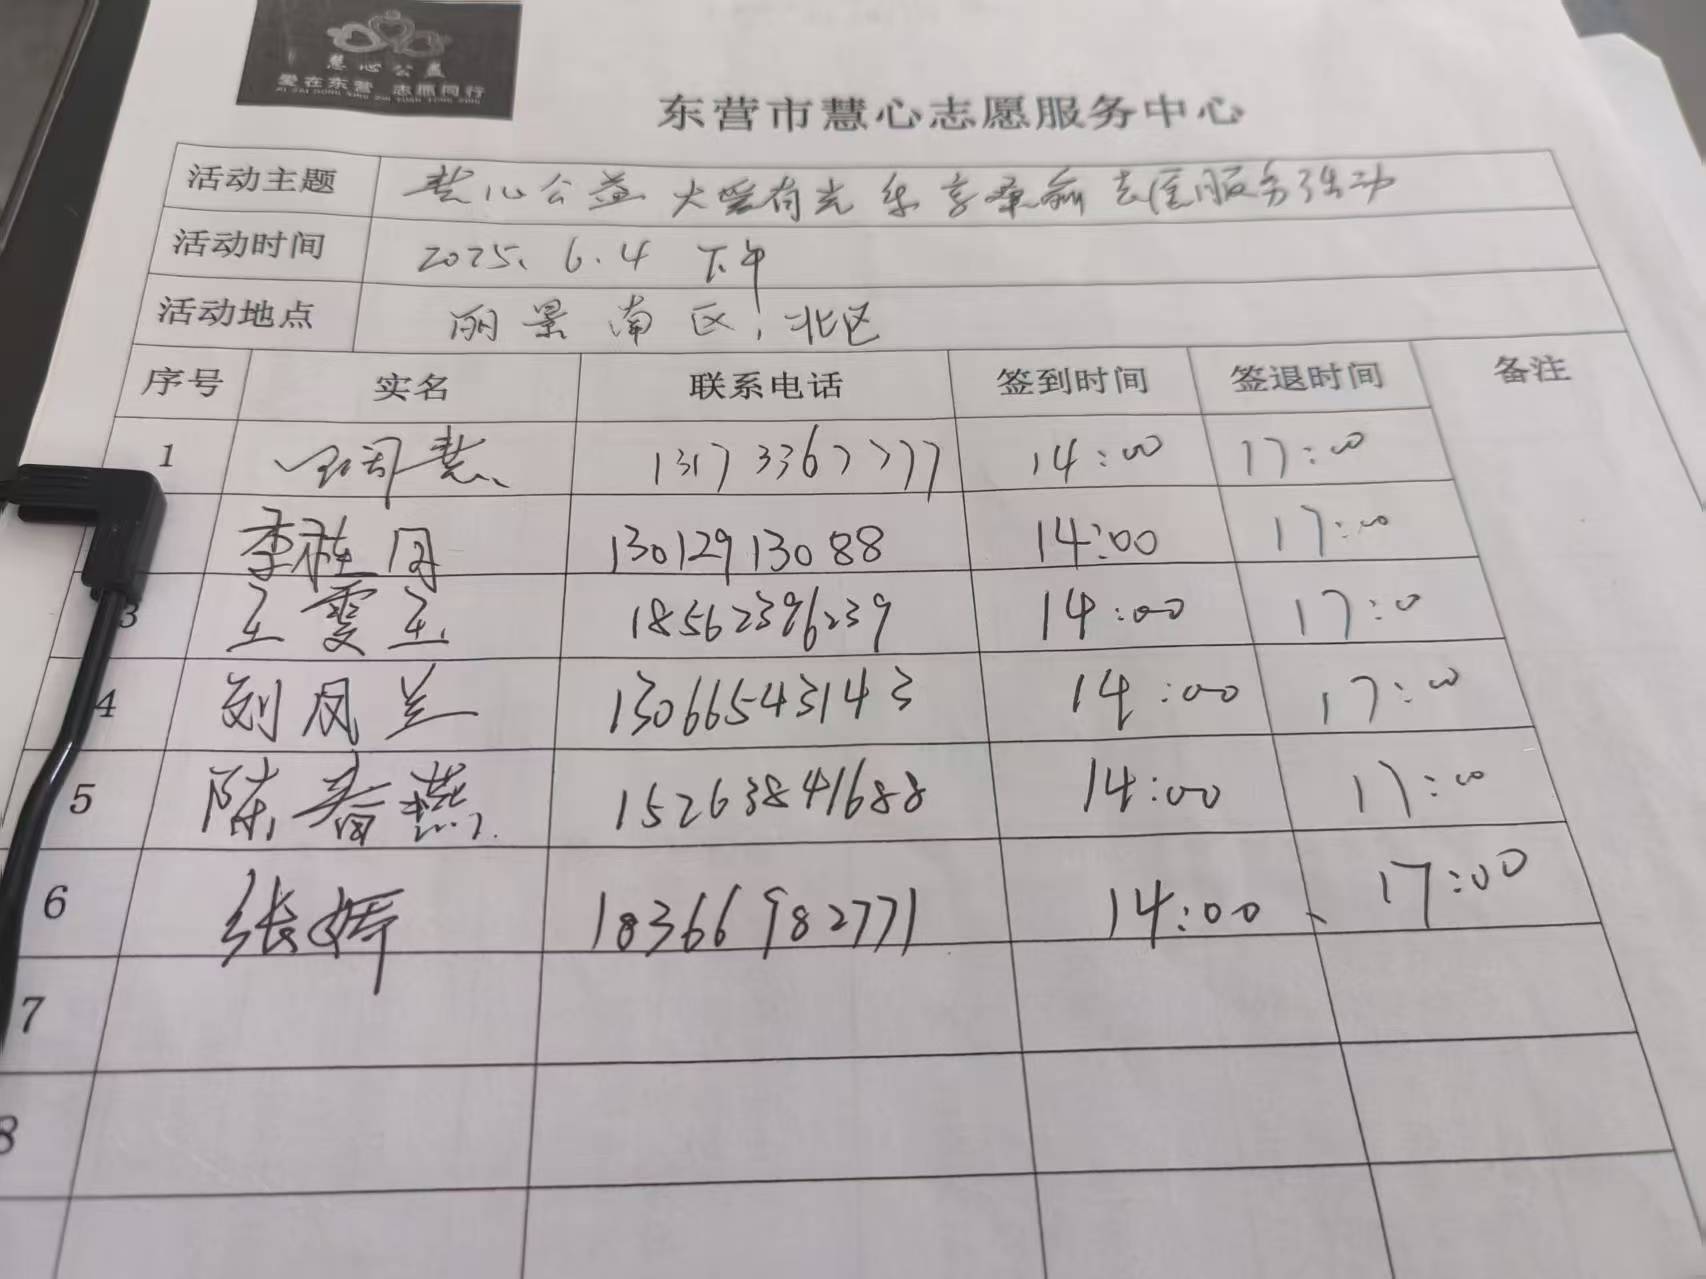 慧心公益
爱在东营 志愿同行
东营市慧心志愿服务中心
活动主题 慧心公益 大爱有光 乐享桑榆 志愿服务活动
活动时间 2025.6.4 下午
活动地点 丽景南区,北区
序号 实名 联系电话 签到时间 签退时间 备注
1 慧 13173367777 14:00 17:00
李桂月 13012913088 14:00 17:00
3 王雯玉 18562396239 14:00 17:0
4 刘凤兰 13066543143 14:00 17:00
5 陈春燕 15263841688 14:00 17:00
6 张婷 18366982771 14:00、 17:00
7
8